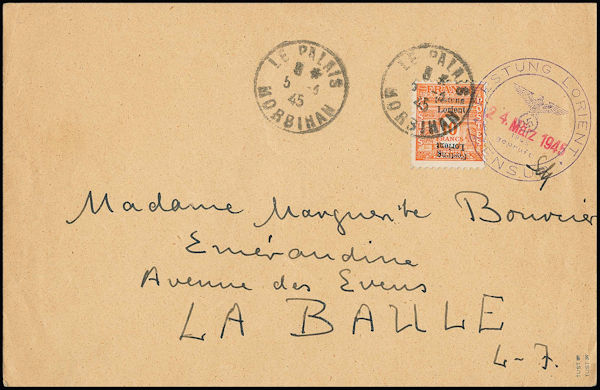 LE PALAIS
8 *
5 -3
45
MORBIHAN
LE PALAIS
8 *
5 -3
45
MORBIHAN
FRANC
Festung
Lorient
FRANCS
Festung
Lorient
FESTUNG LORIENT
24. März 1945
Madame Marguerite Bouvier
Emérandine
Avenue des Evens
LA BAULE
L-I.